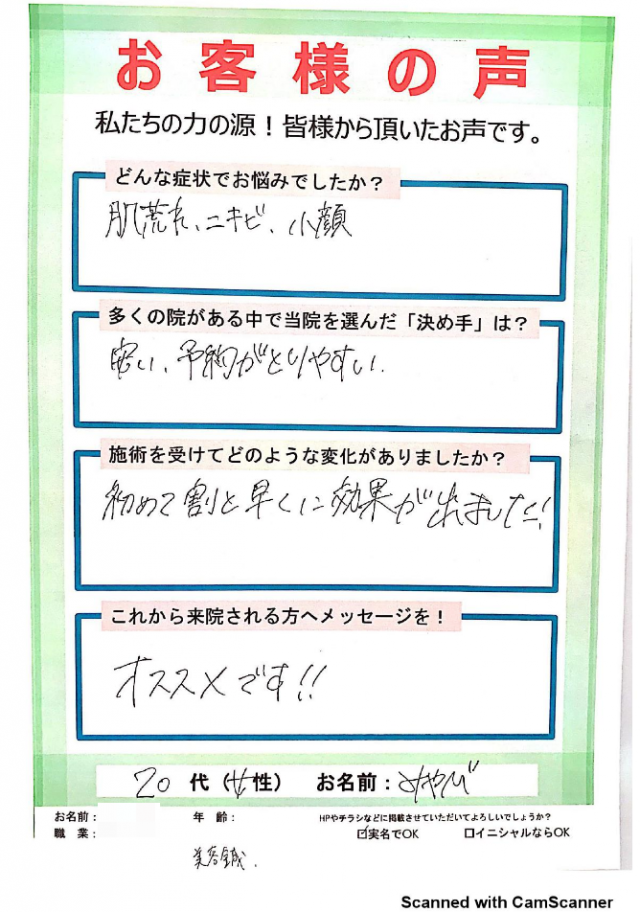 お客様の声
私たちの力の源！皆様から頂いたお声です。
どんな症状でお悩みでしたか？
肌荒れ、ニキビ、小顔
多くの院がある中で当院を選んだ「決め手」は？
安い、予約がとりやすい.
施術を受けてどのような変化がありましたか？
初めて割と早くに効果が出ました!
これから来院される方へメッセージを！
オススメです!!
20 代 (女性) お名前：
お名前： 年 齢： HPやチラシなどに掲載させていただいてよろしいでしょうか？
職 業： ☑実名でOK □イニシャルならOK
美容鍼.
Scanned with CamScanner